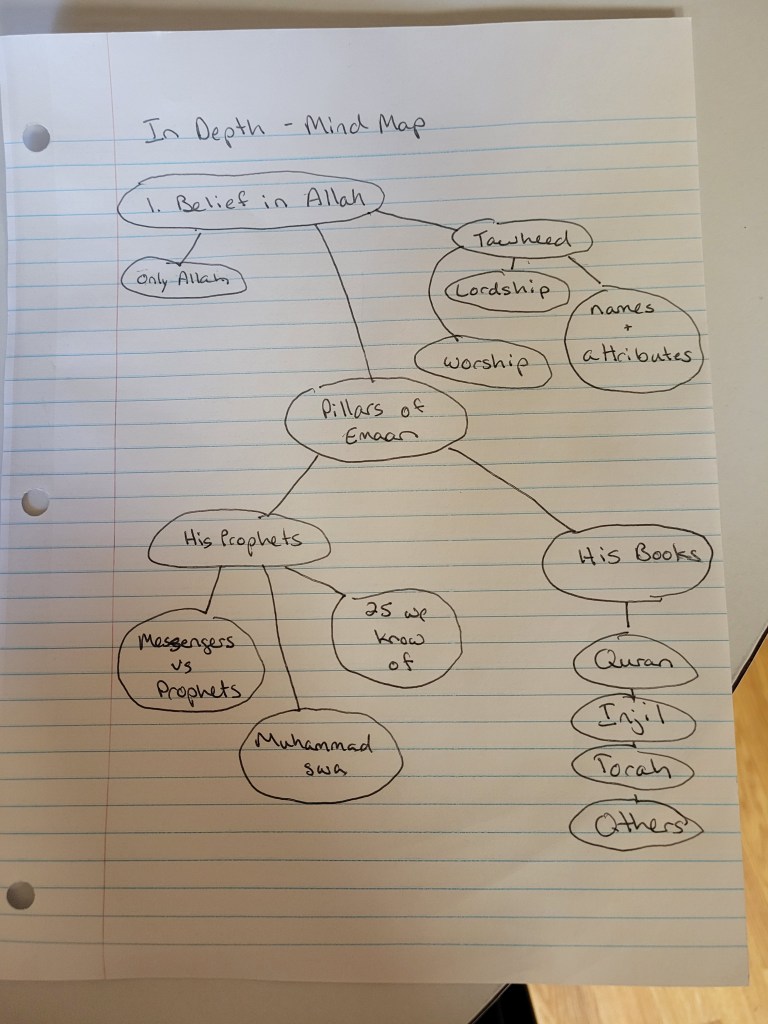 In Depth - Mind Map
1. Belief in Allah
Only Allah
Tawheed
Lordship
worship
names
+
attributes
Pillars of
Emaan
His Prophets
His Books
Messengers
vs
Prophets
25 we
know
of
Muhammad
swa
Quran
Injil
Torah
Others